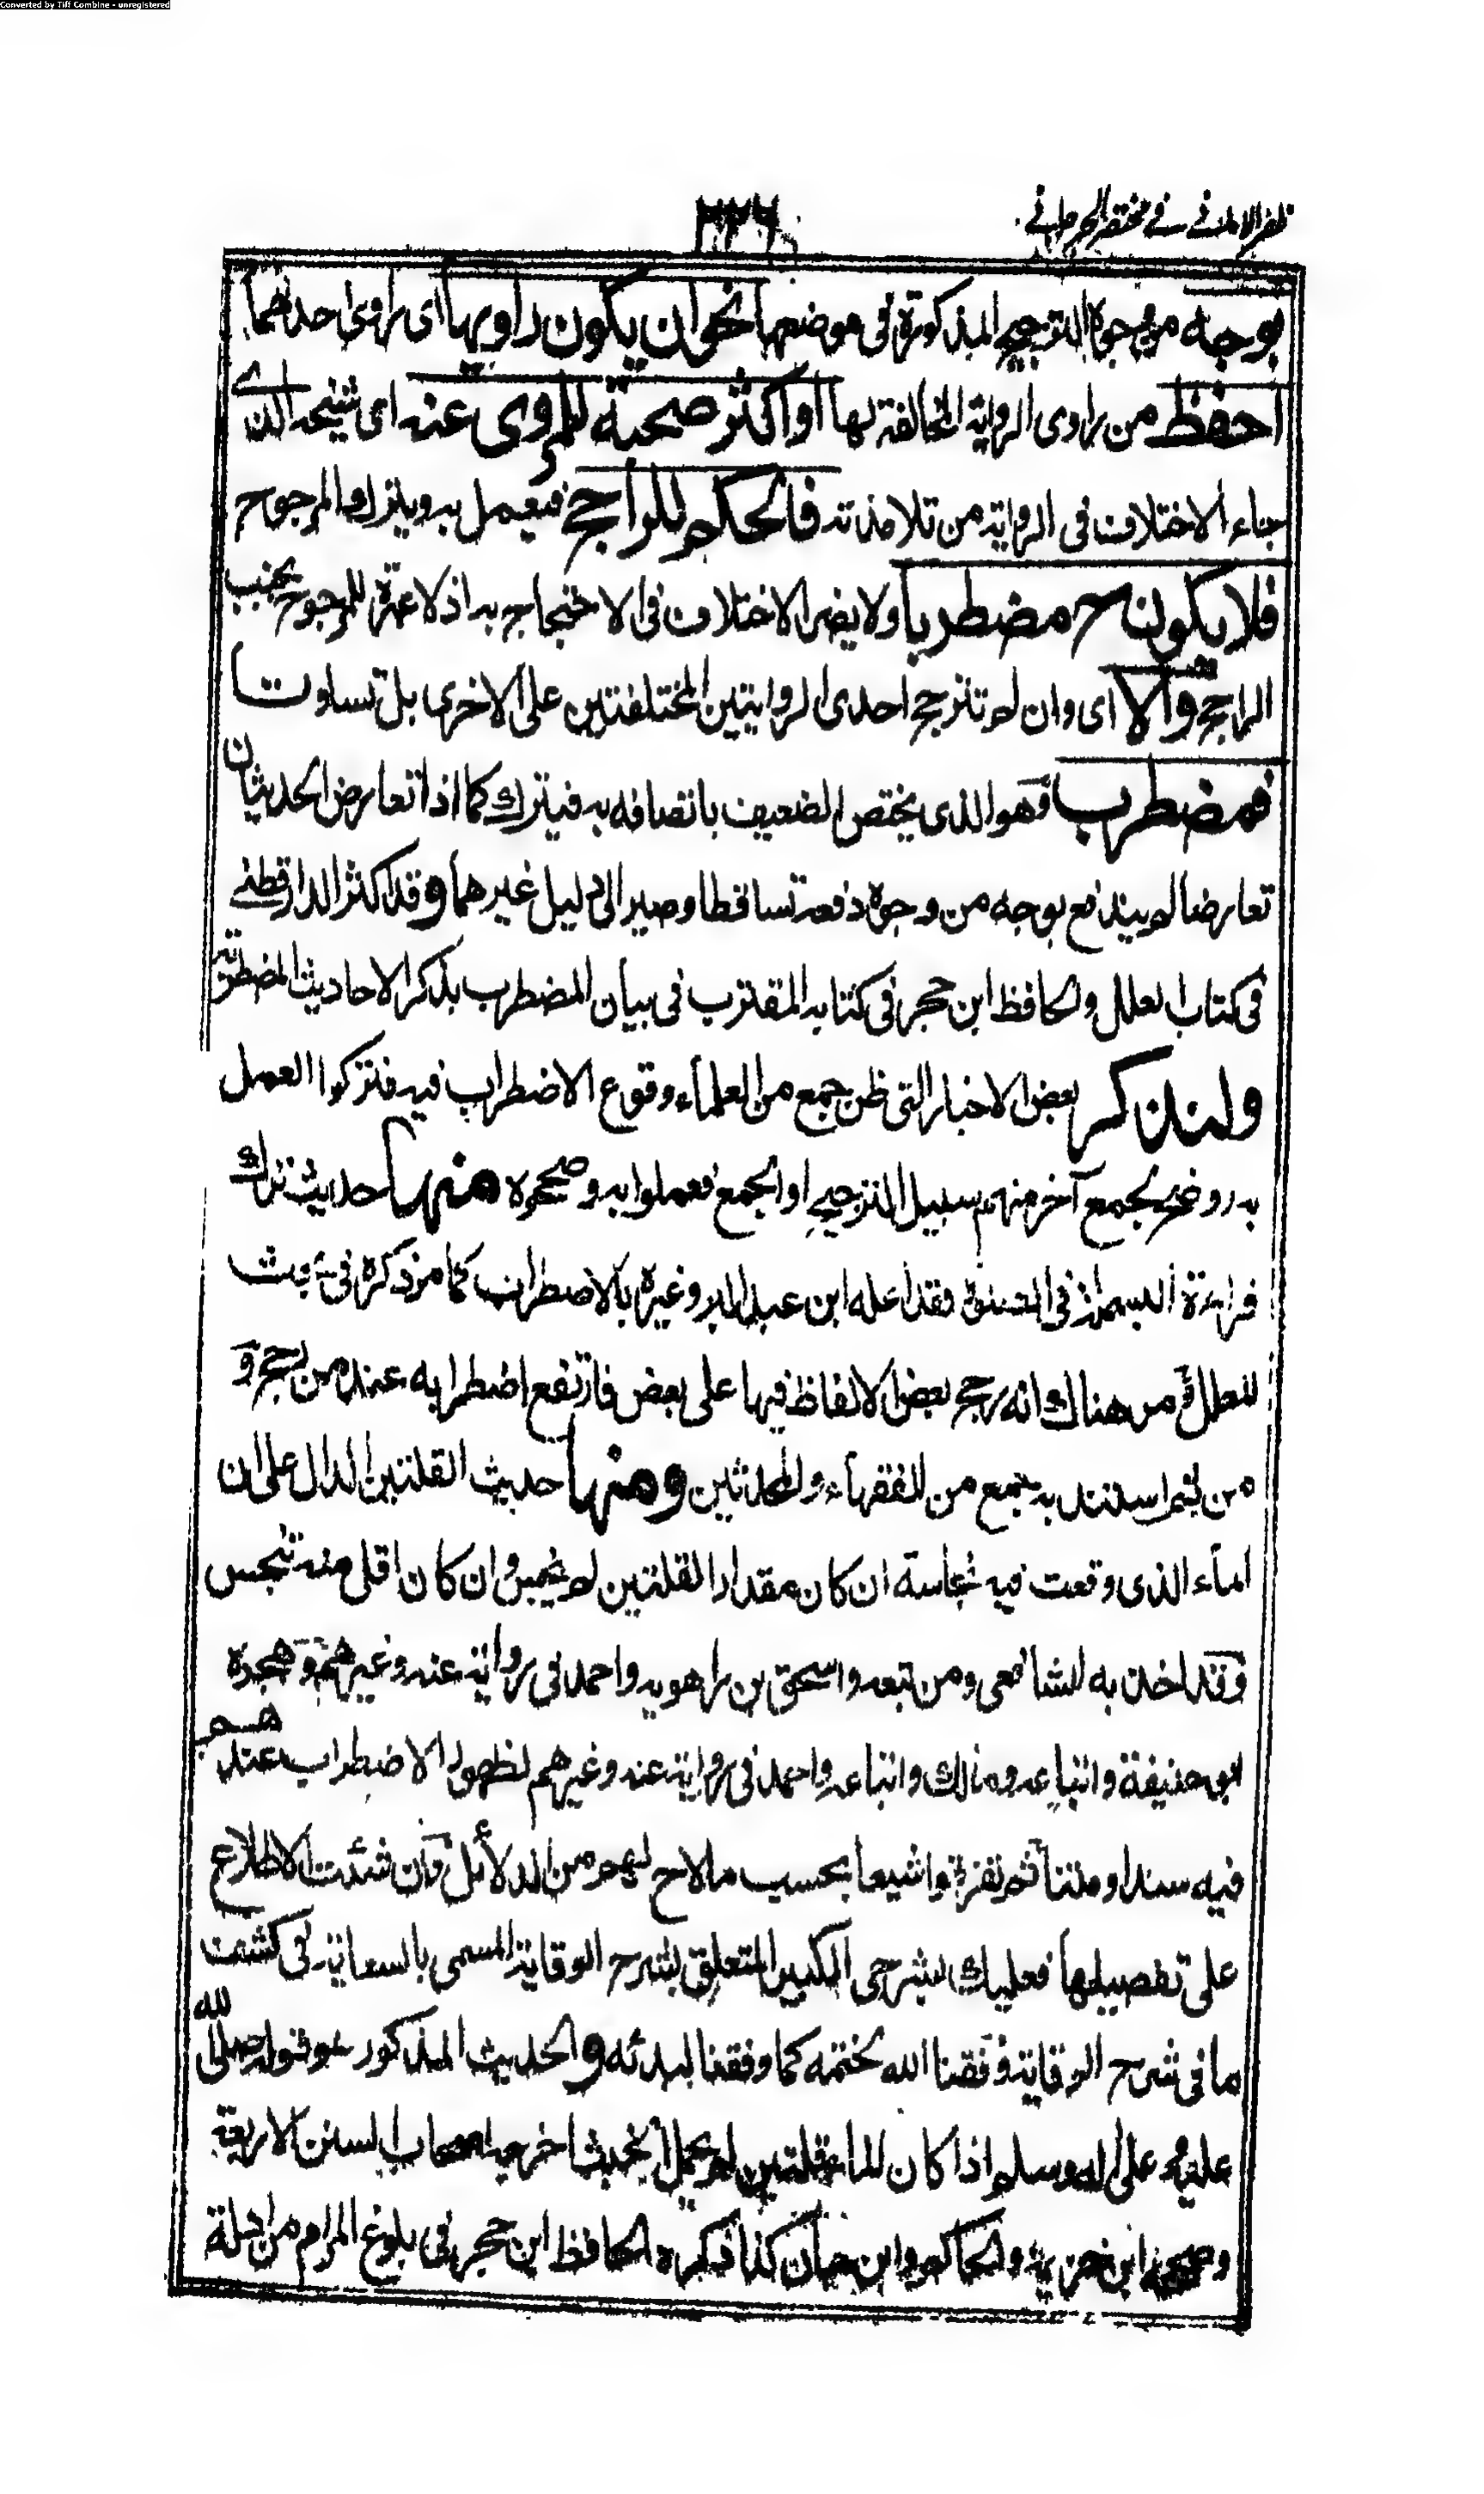 Converted by Tiff Combine - unregistered
ظفر الامانی فے مختصر الجرجانی
۲۲۶
بوجه من وجوه الترجيح المذكورة فى موضعها نحو ان يكون راويها اى راوى احدهما
احفظ من راوى الرواية المخالفة لها او اكثر صحبة للمروى عنه اى شيخه الذے
جاء الاختلاف فى الرواية من تلامذته فالحكم للراجح فيعمل به ويترك المرجوح
فلا يكون ح مضطربا ولا يضر الاختلاف فى الاحتجاج به اذ لا عبرة للمرجوح بجنب
الراجح والا اى وان لم تترجح احدى الروايتين المختلفتين على الاخرى بل تساوت
فمضطرب فهو الذى يختص الضعيف باتصافه به فيترك كما اذا تعارض الحديثان
تعارضا لم يندفع بوجه من وجوه دفعه تساقطا وصير الى دليل غيرهما وقد اكثر الدارقطنے
فى كتاب العلل والحافظ ابن حجر فى كتابه المقترب فى بيان المضطرب بذكر الاحاديث المضطربة
ولنذكر بعض الاخبار التى ظن جمع من العلماء وقوع الاضطراب فيه فتركوا العمل
به ووضح لجمع آخر منهم سبيل الترجيح او الجمع فعملوا به وصححوه منها حديث ترك
قراءة البسملة فى فقد اعله ابن عبد البر وغيره بالاضطراب كما مر ذكره فى بحث
المعلل و من هناك انه رجح بعض الالفاظ فيها على بعض فارتفع اضطرابه عند من رجح و
من ثم استند به جمع من الفقهاء والمحدثين ومنها حديث القلتين الدال على ان
الماء الذى وقعت فيه نجاسة ان كان مقدار القلتين لم ينجس وان كان اقل منه تنجس
وقد اخذ به الشافعى ومن تبعه واسحق بن راهويه واحمد فى رواية عنه وغيرهم وهجره
ابو حنيفة واتباعه ومالك واتباعه واحمد فى رواية عنه وغيرهم لظهور الاضطراب عندهم
فيه سندا ومتنا ثم تفرقوا شيعا بحسب ما لاح لهم من الدلائل وان شئت الاطلاع
على تفصيلها فعليك بشرحى الكبير المتعلق بشرح الوقاية المسمى بالسعاية فى كشف
ما فى شرح الوقاية وفقنا الله لختمه كما وفقنا لبدئه والحديث المذكور هو قوله صلى الله
عليه وعلى اله وسلم اذا كان الماء قلتين لم يحمل الخبث اخرجه اصحاب السنن الاربعة
وصححه ابن خزيمة والحاكم وابن حبان كذا ذكره الحافظ ابن حجر فى بلوغ المرام من ادلة